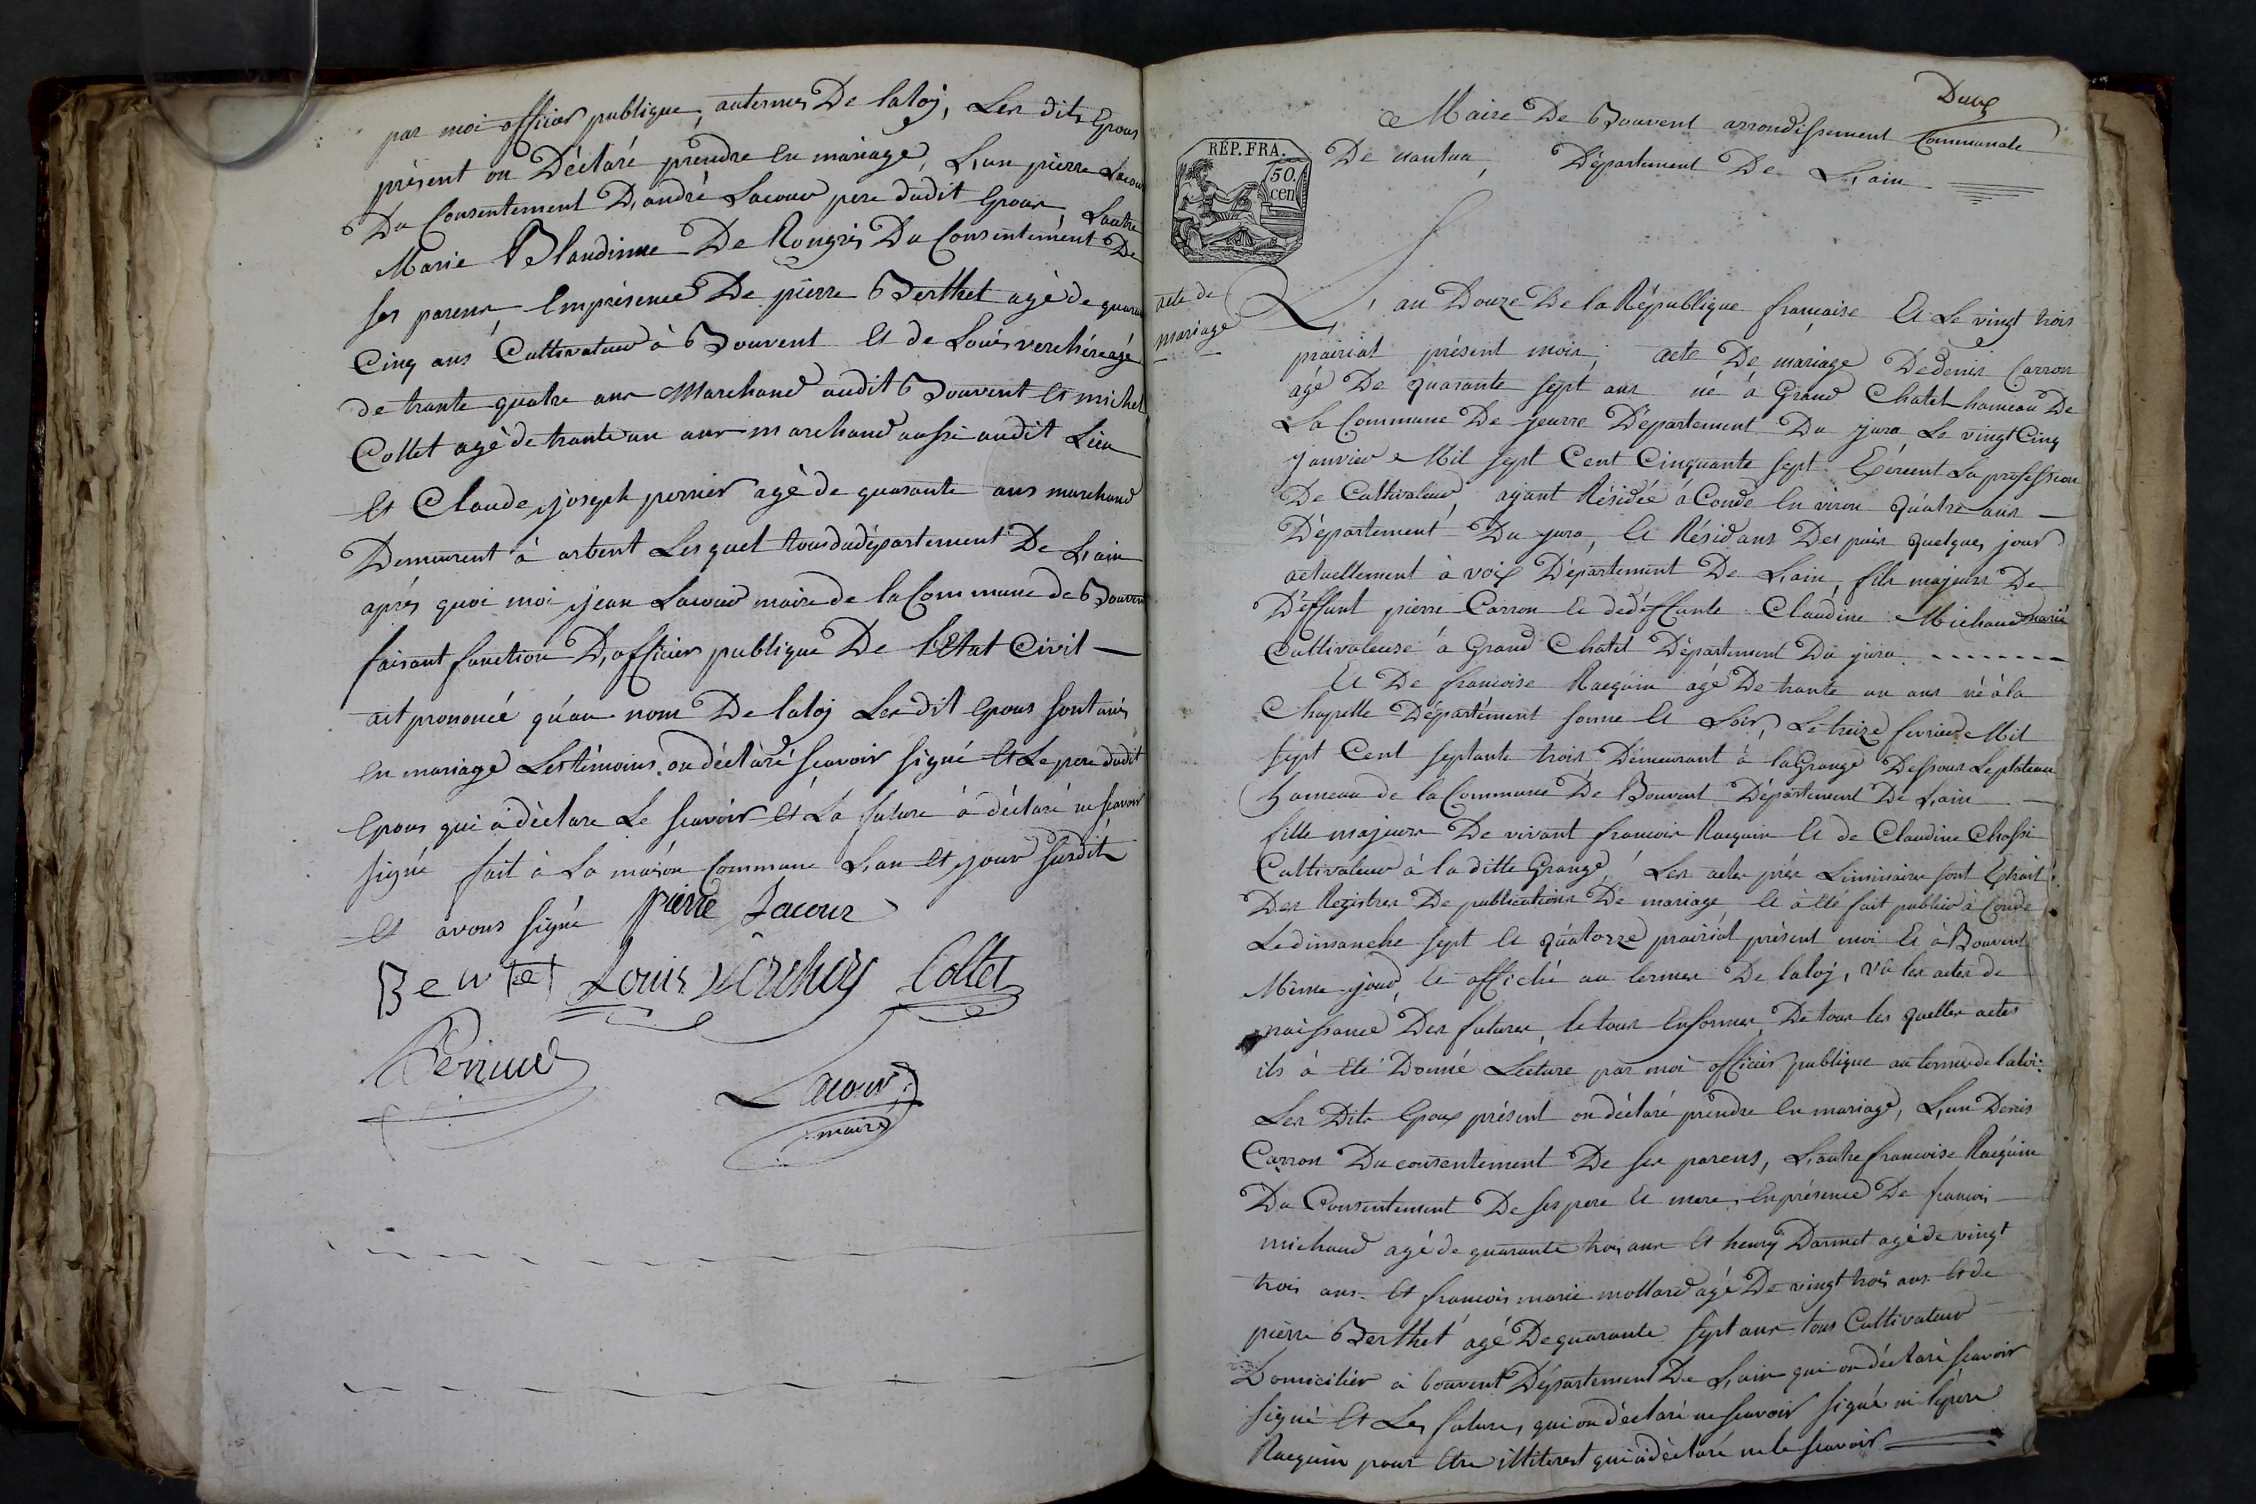 par moi officier publique, autermes De laloj, Les dits Epoux
présent on Déclaré prendre En mariage, L,un pierre Lacour
Du Consentement D,andré Lacour pere dudit Epoux, Lautre
Marie Blandinne De Rougris Du Consentement De
ses parens Emprésence De pierre Berthet agé de quarante
Cinq ans Cultivateur à Bouvent Et de Louis verchére agé
de trante quatre ans Marchand audit Bouvent Et michel
Collet agé de trante un ans marchand aussi audit Lieu
Et Claude joseph perrier agé de quarante ans marchand
Demeurent à arbent Lesquel tous dudépartement De L,ain
après quoi moi jean Lacour maire de la Commune de Bouvent
faisant fonction D,officier publique De l'Etat Civil
ait prononcé qu'au nom De laloj Les dit Epoux sont unis
En mariage Les témoins on déclaré scavoir signé Et Le pere dudit
Epoux qui à déclare Le scavoir Et La future à déclaré ne scavoir
signé fait à La maison Commune L,an Et jour susdit
Et avons signé pierre Lacour
Bertet Louis Verchery Collet
Perrier
Lacour
maire
Deux
Mairie De Bouvent arrondissement Communale
De nantua, Département De L,ain
RÉP. FRA.
50.
cen
acte de
mariage
L,an Douze De la République francaise Et Le vingt trois
prairial présent mois, acte De mariage De denis Carron
agé De quarante sept ans né à Grand Chatel hameau De
La Commune De jeurre Département Du jura Le vingt Cinq
Janvier Mil sept Cent Cinquante sept Exércent La profession
De Cultivateur, ayant Résidée à Conde En viron quatre ans
Département Du jura, Et Résidans Des puis quelques jour
actuellement à voix Département De L,ain, fils majeurs De
Déffunt pierre Carron Et dedéffunte Claudine Michaud marié
Cultivateuse à Grand Chatel Département Du jura
Et De francoise Racquin agé De trante un ans né à la
Chapelle Département sonne Et Loir, Le treize fevrier Mil
sept Cent septante trois Démeurant à la Grange Dessous Le plateau
hameau de la Commune De Bouvent Département De L,ain
fille majeure De vivant francois Racquin Et de Claudine Chassi
Cultivateur à la ditte Grange, Les actes prés Liminaire sont Extrait
Des Registres De publications De mariage Et à Eté fait publier à Conde
Le dimanche sept Et quatorze prairial présent moi Et à Bouvent
Même jour, Et affiché au termes De laloj, vû les actes de
naissance Des futures, le tous Enformes, De tous les quelles actes
ils à Eté Donné Lecture par moi officier publique au termes de laloi
Les Dits Epoux présent on déclaré prendre En mariage, L,un Denis
Carron Du consentement De ses parens, L,autre francoise Racquin
Du Consentement De ses pere Et mere, Enprésence De francois
michaud agé de quarante trois ans Et henrÿ Darmet agé de vingt
trois ans Et francois marie mollard agé De vingt trois ans Et de
pierre Berthet agé De quarante sept ans tous Cultivateur
Domicilier à bouvent Département De L,ain qui on déclaré scavoir
signé Et Les futures, qui on déclaré ne scavoir signé ni lepère
Racquin pour Etre illiterest qui à déclaré ne le scavoir